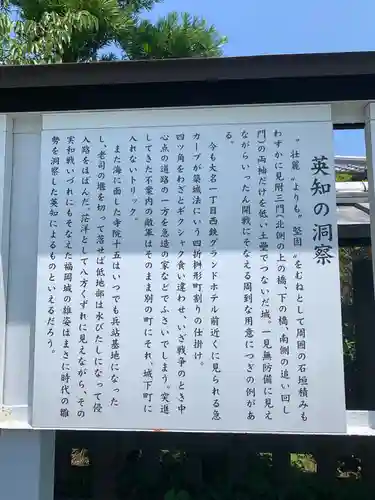 英知の洞察
〝壮麗〟よりも〝堅固〟をむねとして周囲の石垣積みも
わずかに見附三門(北側の上の橋、下の橋、南側の追い回し
門)の両袖だけを低い土塁でつないだ城。一見無防備に見え
ながらいったん開戦にそなえる周到な用意につぎの例があ
る。
今も大名一丁目西鉄グランドホテル前近くに見られる急
カーブが築城法にいう四折桝形町割りの仕掛け。
四ツ角をわざとギクシャク食い違わせ、いざ戦争のとき中
心点の道路の一方を急造の家などでふさいでしまう。突進
してきた不案内の敵軍はそのまま別の町にそれ、城下町に
入れないトリック。
また海に面した寺院十五はいつでも兵站基地になった
し、老司の堰を切って落せば低地部は水びたしになって侵
入路をはばんだ。茫洋として八方くずれに見えながら、その
実和戦いづれにもそなえた福岡城の雄姿はまさに時代の雛
勢を洞察した英知によるものといえるだろう。